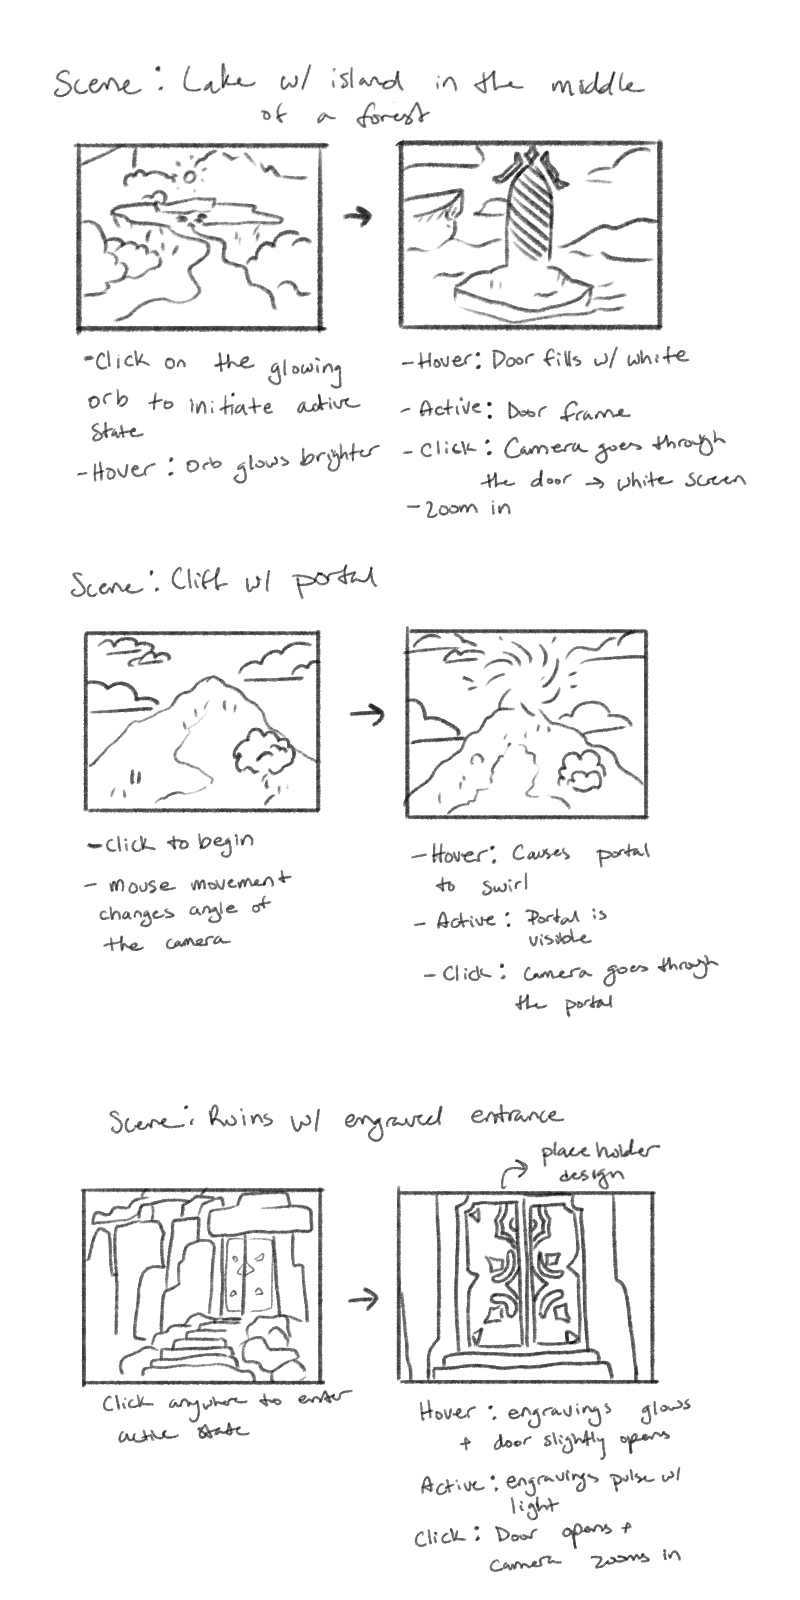 Scene: Lake w/ island in the middle
of a forest
-Click on the glowing
orb to initiate active
state
-Hover: Orb glows brighter
-Hover: Door fills w/ white
-Active: Door frame
-Click: Camera goes through
the door → white screen
-Zoom in
Scene: Cliff w/ portal
-Click to begin
- mouse movement
changes angle of
the camera
-Hover: Causes portal
to swirl
- Active: Portal is
visible
-Click: Camera goes through
the portal
Scene: Ruins w/ engraved entrance
placeholder
design
Click anywhere to enter
active state
Hover: engravings glows
+ door slightly opens
Active: engravings pulse w/
light
Click: Door opens +
camera zooms in